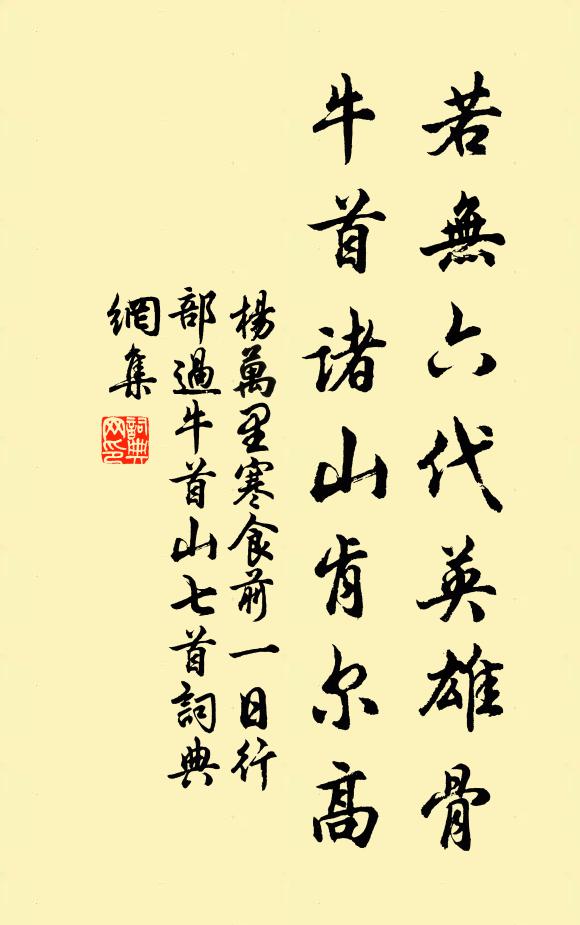 若無六代英雄骨
牛首诸山肯尔高
楊萬里寒食前一日行
部過牛首山七首詞典
網集
詞典
网印